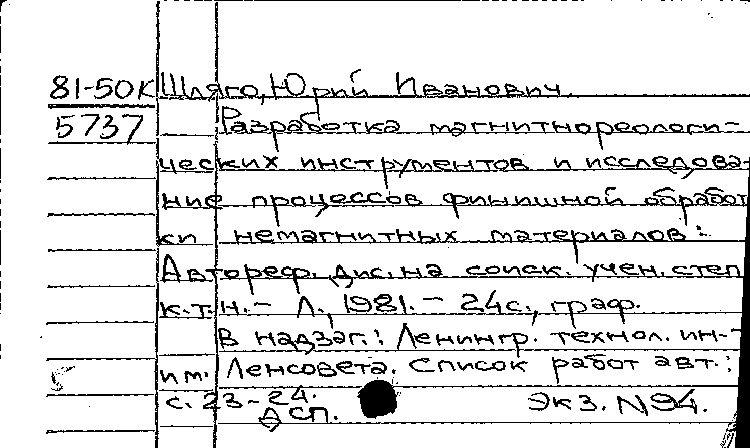 81-50К Шляго, Юрий Иванович.
5737 Разработка магнитнореологи-
ческих инструментов и исследова-
ние процессов финишной обработ
ки немагнитных материалов:
Автореф. дис. на соиск. учен. степ
к.т.н. - Л., 1981. - 24с., граф.
В надзаг.: Ленингр. технол. ин-т
им. Ленсовета. Список работ авт.:
с. 23-24.
Экз. N94.